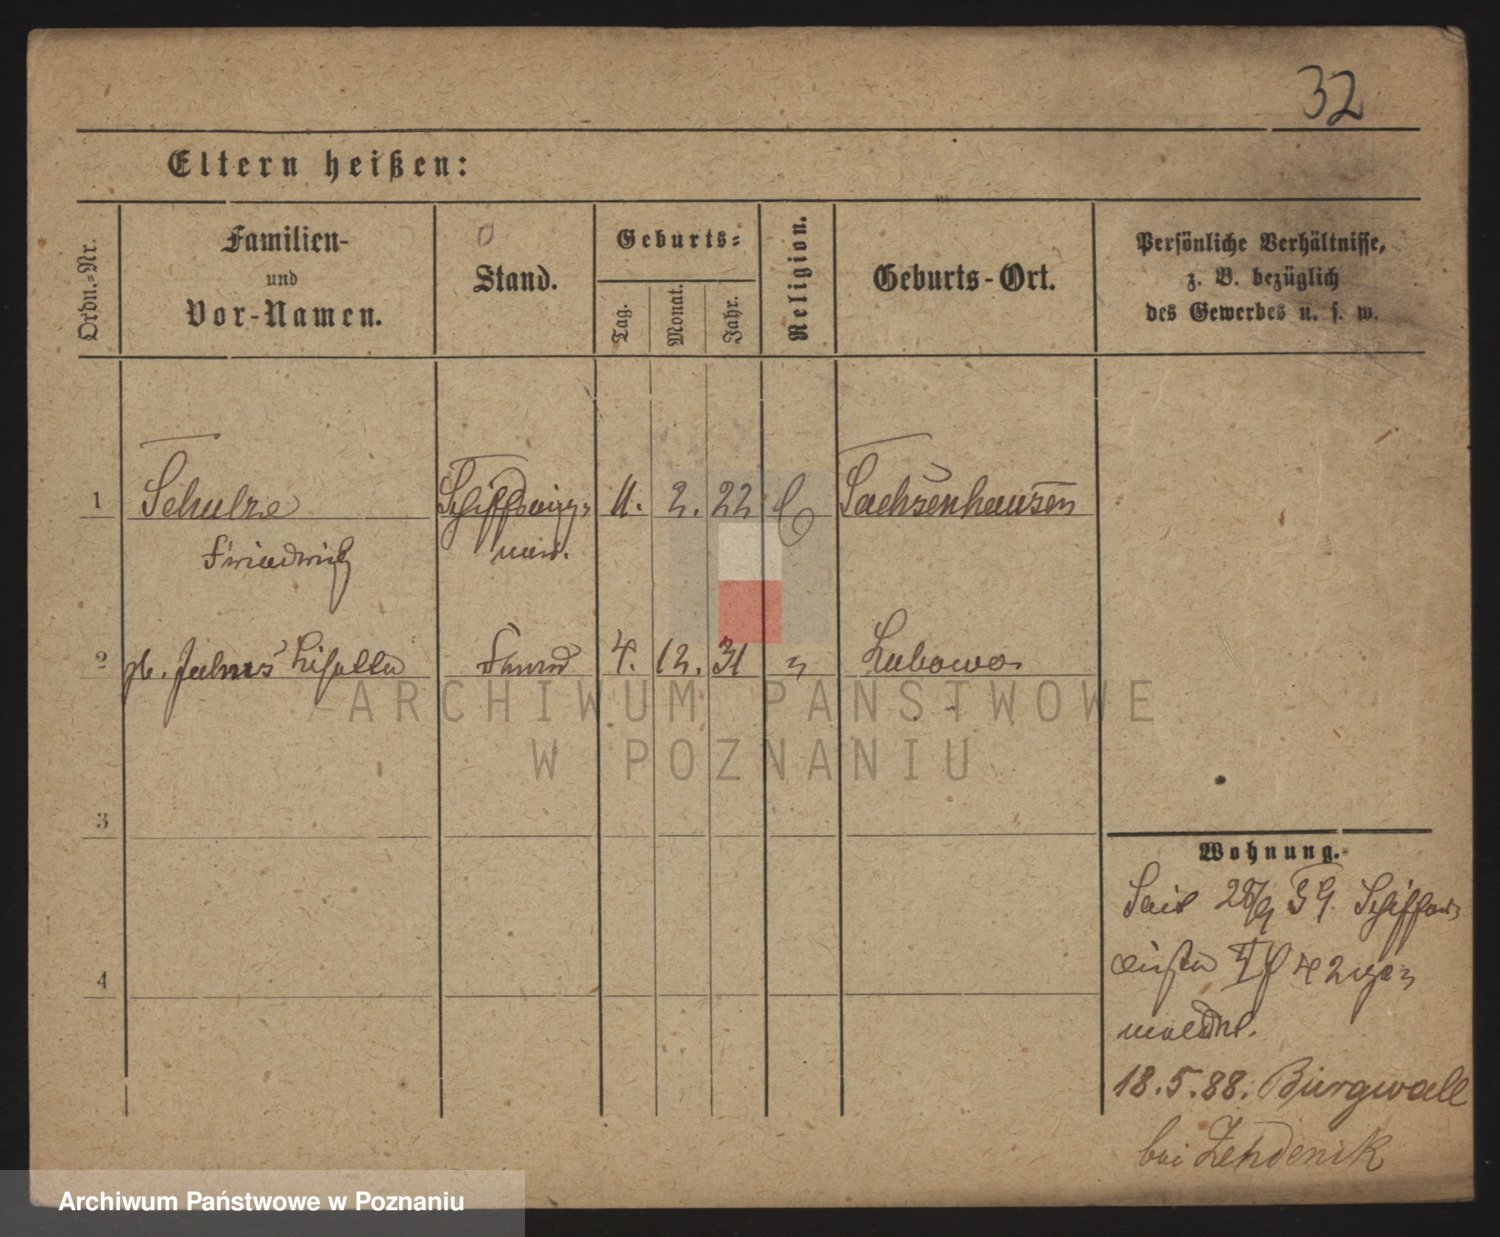 32
Eltern heißen:
Ordn.-Nr.
Familien-
und
Vor-Namen.
Stand.
Geburts-
Tag.
Monat.
Jahr.
Religion.
Geburts-Ort.
Persönliche Verhältnisse,
z. B. bezüglich
des Gewerbes u. s. w.
1 Schulze 11. 2. 22 Sachsenhausen
Friedrich
2 geb. 4. 12. 31 " Lubowo
ARCHIWUM PAŃSTWOWE
W POZNANIU
3
Wohnung.
Seit 28/9 59
4
18.5.88. Burgwall
bei Zehdenik
Archiwum Państwowe w Poznaniu